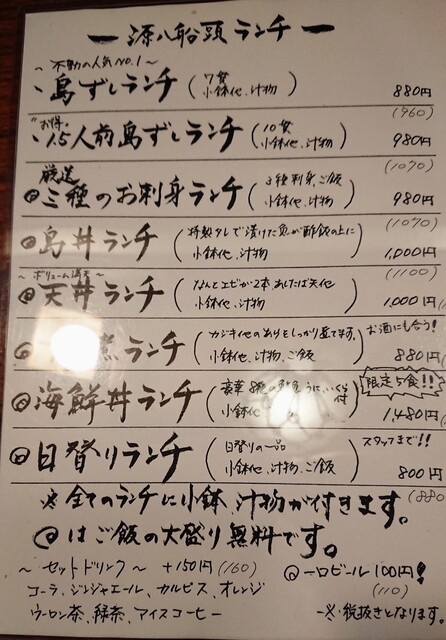 ー 源八船頭 ランチ ー
～ 不動の人気NO.1 ～
、島ずしランチ (7貫 小鉢他、汁物) 880円
(960)
"お得" 、1.5人前島ずしランチ (10貫 小鉢他、汁物) 980円
(1070)
厳選 @三種のお刺身ランチ (3種刺身、ご飯 小鉢他、汁物) 980円
(1070)
@島丼ランチ (特製タレで漬けた魚が酢飯の上に 小鉢他、汁物) 1,000円
(1100)
～ ボリューム満天 ～
@天丼ランチ (なんとエビが2本 あしたば天他 小鉢他、汁物) 1,000円
煮ランチ (カジキ他のあらとしっかり煮てます。 小鉢他、汁物、ご飯) お酒にも合う! 880円
@海鮮丼ランチ (豪華 うに、いくら付 小鉢) 限定5食!! 1,480円
@日替りランチ (日替りの一品 小鉢他、汁物、ご飯) スタッフまで!! 800円
(880
※全てのランチに小鉢、汁物が付きます。
@はご飯の大盛り無料です。
～ セットドリンク ～ +150円(160)
コーラ、ジンジャエール、カルピス、オレンジ
ウーロン茶、緑茶、アイスコーヒー
@一口ビール 100円!
(110)
※税抜きとなります。